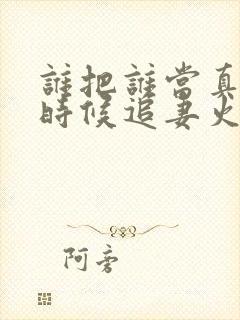 誰把誰當真
時候追妻火
阿旁